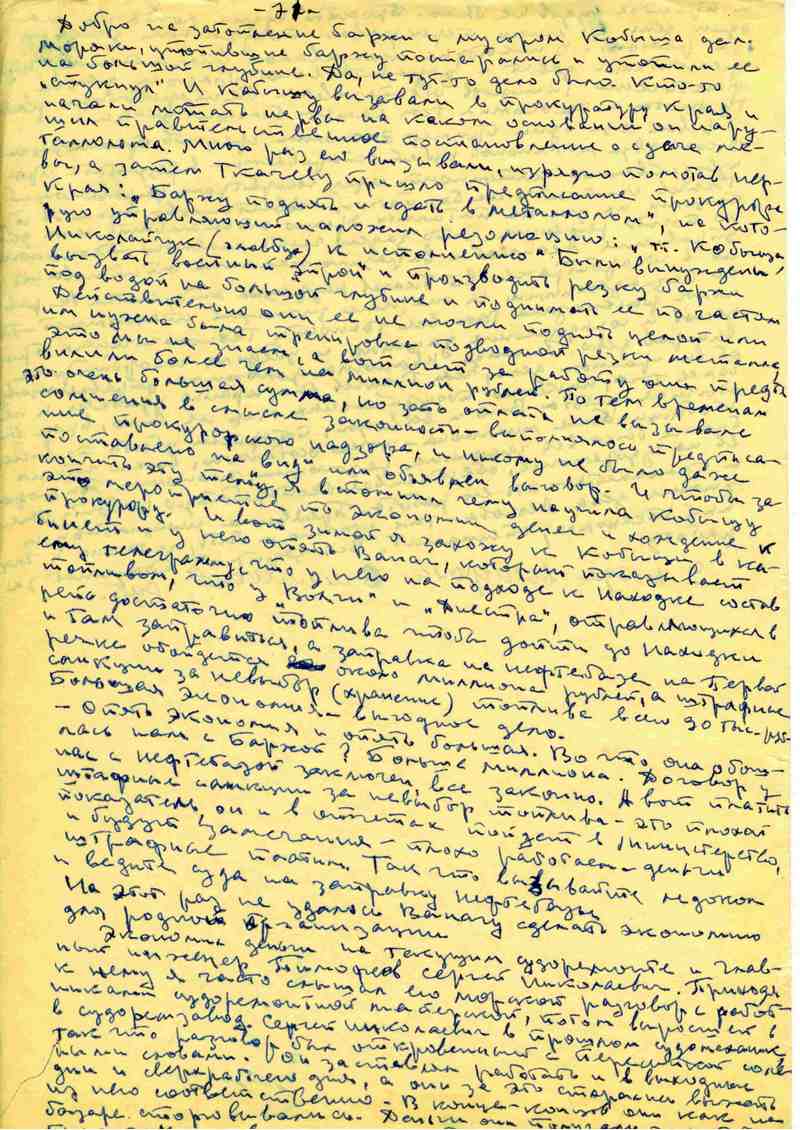 Добро на затопление баржи с мусором Кобыща дал.
Моряки, утопившие баржу постарались и утопили ее
на большой глубине. Да, не тут-то дело было. Кто-то
„стукнул" и Кобыщу вызвали в прокуратуру края и
начали мотать нервы на каком основании он нару-
шил правительственное постановление о сдаче ме-
таллолома. Много раз его вызывали, изрядно помотав нер-
вы, а затем Ткачеву пришло предписание прокурора
края: „Баржу поднять и сдать в металлолом", на кото-
рую управляющий наложил резолюцию: „тт. Кобыща
Николайчук (главбух) к исполнению". Были вынуждены
вызвать военный и производить резку баржи
под водой на большой глубине и поднимать ее по частям
Действительно они ее не могли поднять целой или
им нужна была тренировка подводной резки металла,
это мы не знаем, а вот счет за работу они предъ-
вили более чем на миллион рублей. По тем временам
это очень большая сумма, но зато оплата не вызывала
сомнения в смысле законности - выполнялось предписа-
ние прокурорского надзора, и никому не было даже
поставлено на вид или объявлен выговор. И чтобы за-
кончить эту тему, я вспомнил чему научила Кобыщу
это мероприятие по экономии денег и хождение к
прокурору. И вот зимой я захожу к Кобыще в ка-
бинет и у него опять Ванаг, который показывает
ему телеграмму, что у него на подходе к Находке состав
топливом, что у „Волги" и „Днестра", отправляющихся в
рета достаточно топлива чтобы дойти до Находки
и там заправиться, а заправка на нефтебазе на Первой
речке обойдется около миллиона рублей, а штрафные
санкции за невыбор (хранение) топлива всего 20 тыс. руб.
Большая экономия - выгодное дело.
- Опять экономия и опять большая. Во что она обош-
лась нам с баржой? Больше миллиона. Договор у
нас с нефтебазой заключен, все законно. А вот платить
штрафные санкции за невыбор топлива - это плохой
показатель, он и в отчетах пойдет в министерство,
и будут замечания - плохо работаем - деньги
штрафные платим. Так что вызывайте ледокол
и ведите суда на заправку нефтебазы
На этот раз не удалось Ванагу сделать экономию
для родной организации
Экономил деньги на текущем судоремонте и глав-
ный инженер Тимофеев Сергей Николаевич. Приходя
к нему я часто слышал его морской разговор с работ-
никами судоремонтной мастерской, потом выросшей в
в судоремзавод. Сергей Николаевич в прошлом судомеханик
так что разговор был откровенный с пересыпкой соле-
ными словами. Он заставлял работать и в выходные
дни и сверхрабочего дня, а они за это старались выжать
из него соответственно. В конце-концов они как на
базаре сторговывались. Деньги они получали